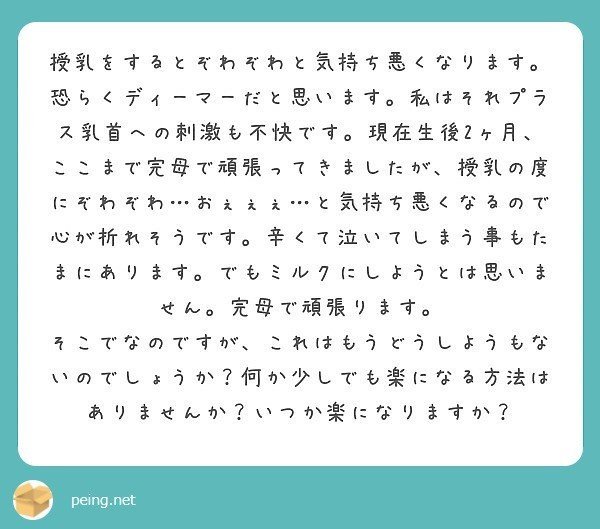 授乳をするとぞわぞわと気持ち悪くなります。
恐らくディーマーだと思います。私はそれプラ
ス乳首への刺激も不快です。現在生後2ヶ月、
ここまで完母で頑張ってきましたが、授乳の度
にぞわぞわ…おぇぇぇ…と気持ち悪くなるので
心が折れそうです。辛くて泣いてしまう事もた
まにあります。でもミルクにしようとは思いま
せん。完母で頑張ります。
そこでなのですが、これはもうどうしようもな
いのでしょうか？何か少しでも楽になる方法は
ありませんか？いつか楽になりますか？
peing.net